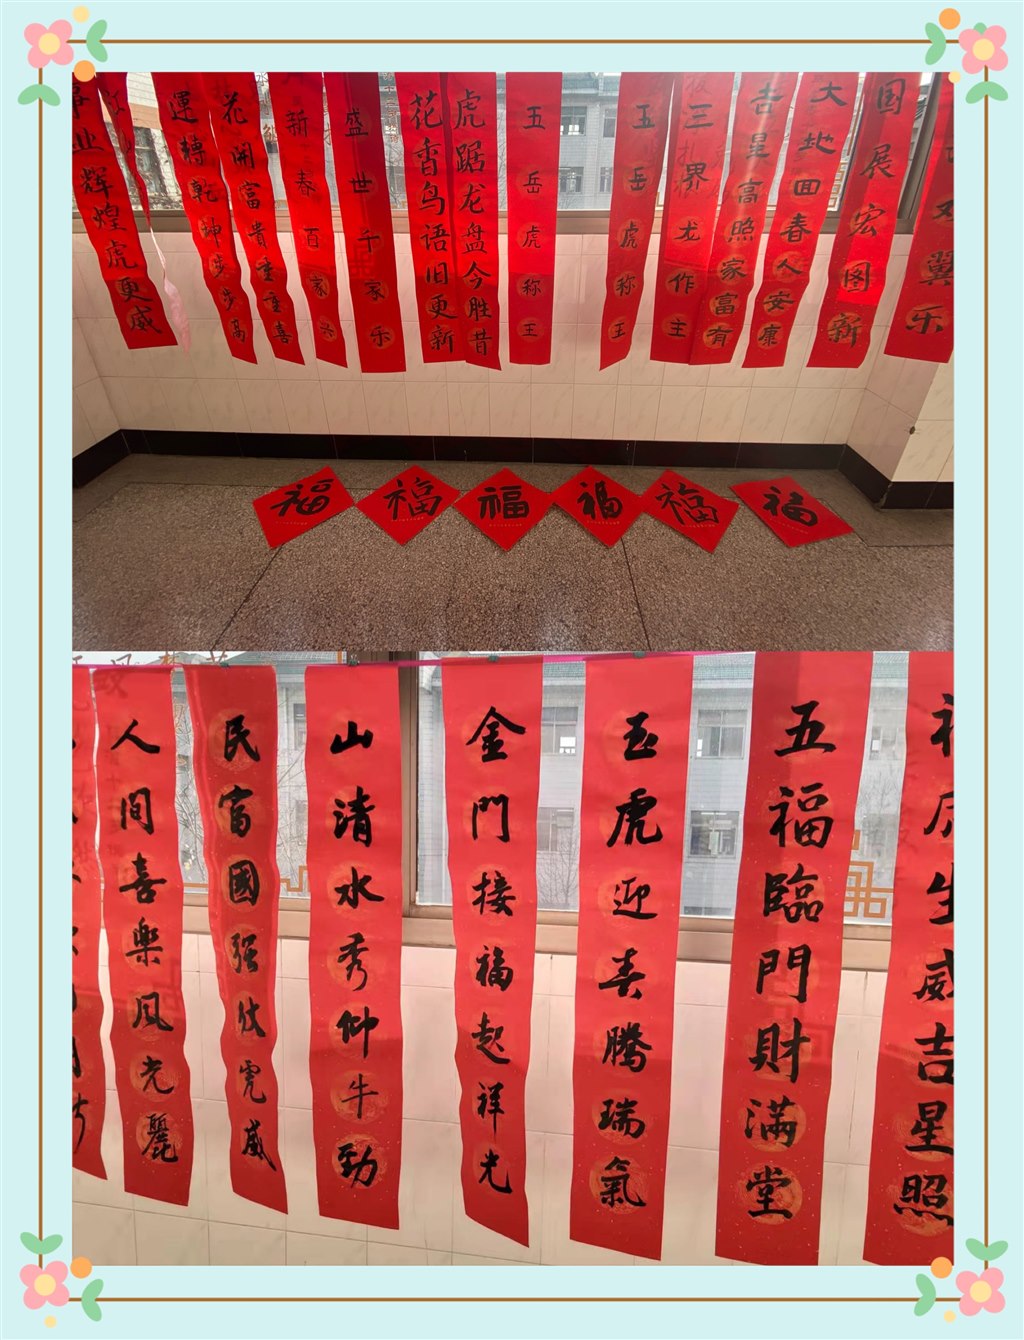 业辉煌虎更威
運轉乾坤步步高
花開富貴重重喜
新春百家兴
盛世千家乐
花香鸟语旧更新
虎踞龙盘今胜昔
五岳虎称王
五岳虎称王
三界龙作主
吉星高照家富有
大地回春人安康
国展宏图新
翼乐
福
福
福
福
福
福
人間喜樂风光麗
民富國强伏虎威
山清水秀仰牛劲
金門接福起祥光
玉虎迎春騰瑞氣
五福臨門財满堂
虎生威吉星照